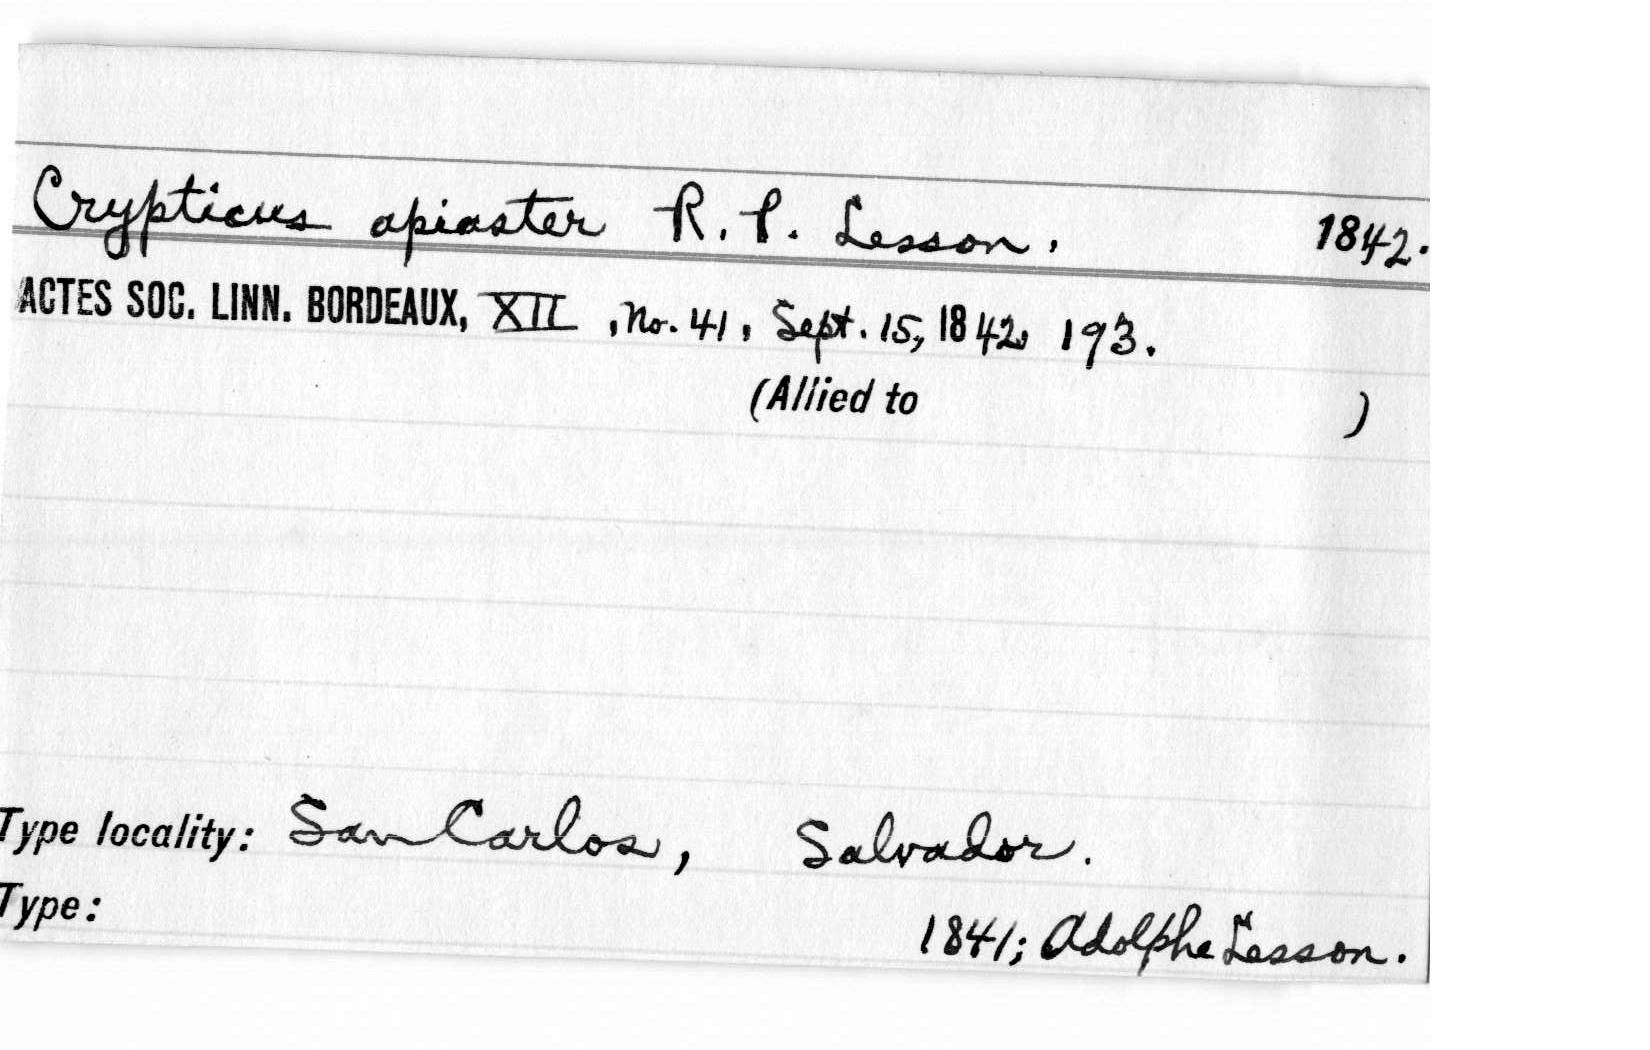 Crypticus apiaster R. P. Lesson. 1842.
ACTES SOC. LINN. BORDEAUX, XII, No. 41, Sept. 15, 1842, 193.
(Allied to )
Type locality: San Carlos, Salvador.
Type: 1841; Adolphe Lesson.